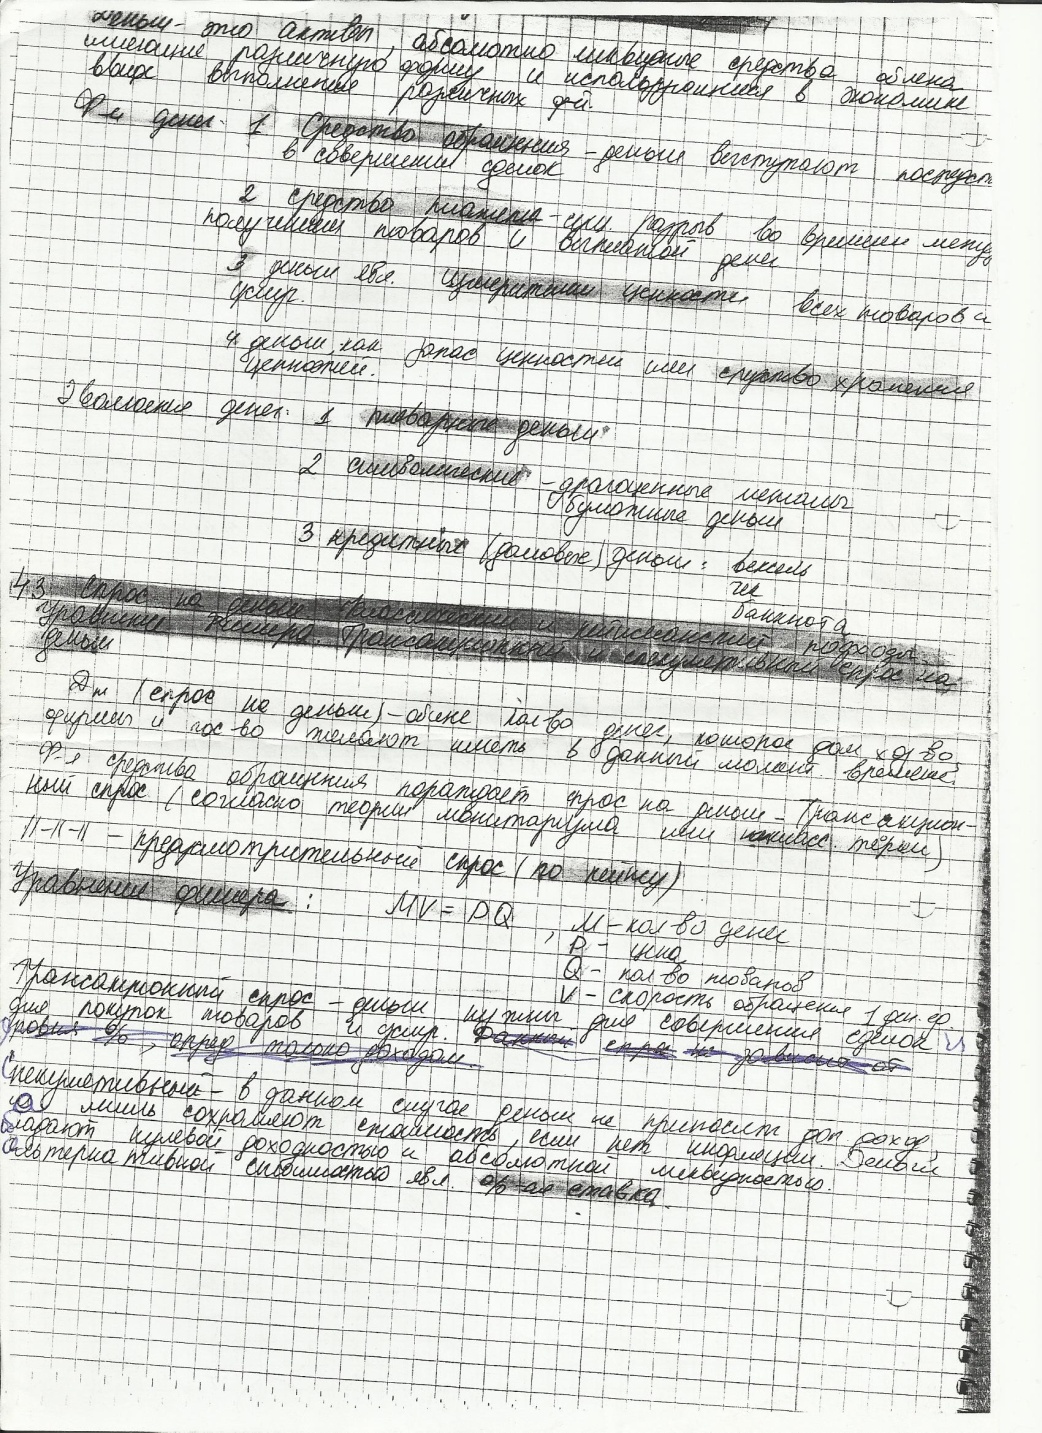 Деньги - это активы, абсолютно ликвидные средства облена
имеющие различную форму и используюшиеся в экономике
ввиде выполнения различных ф-й.
Ф-и денег: 1 Средство обращения - деньги выступают посредст
в совершении сделок
2 средство платежа - при разрыв во времени между
получением товаров и выплатой денег
3 деньги явл. измерителем ценности всех товаров и
услуг.
4. деньги как запас ценностей или средство хранения
ценностей.
Эволюция денег: 1 товарные деньги
2 символические - драгоценные металлы
бумажные деньги
3 кредитные (долговые) деньги: вексель
чек
банкнота
43 Спрос на деньги классический и кейнсианский подходы.
Уравнение Фишера. Трансакционный и спекулятивный спрос на
деньги
Dм (спрос на деньги) - общее кол-во денег, которое дом. хоз-во,
фирмы и гос-во желают иметь в данный момент времени
Ф-я средства обращения порождает спрос на деньги - Трансакцион-
ный спрос (согласно теории монитаризма или класс. теории)
11-11-11 - предусмотрительный спрос (по кейнсу)
Уравнение фишера: MV = PQ , M - кол-во денег
P - цена
Q - кол-во товаров
V - скорость обращения 1 ден. ед.
Трансакционный спрос - деньги нужны для совершения сделок
для покупок товаров и услуг. Данный спрос не зависит от
уровня %, опред только доходом.
Спекулятивный - в данном случае деньги не приносит доп доход,
а лишь сохраняют стоимость, если нет инфляции. Деньги
обладают нулевой доходностью и абсолютной ликвидностью.
альтернативной стоимостью явл. %-ая ставка.